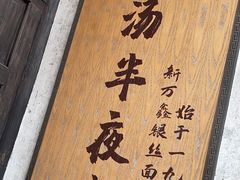 汤半夜
新万鑫银丝面
始于一九